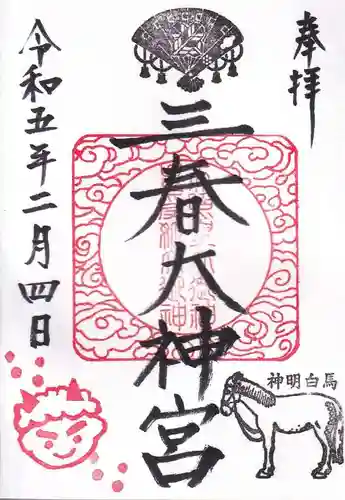 奉拝
三春大神宮
令和五年二月四日
神明白馬